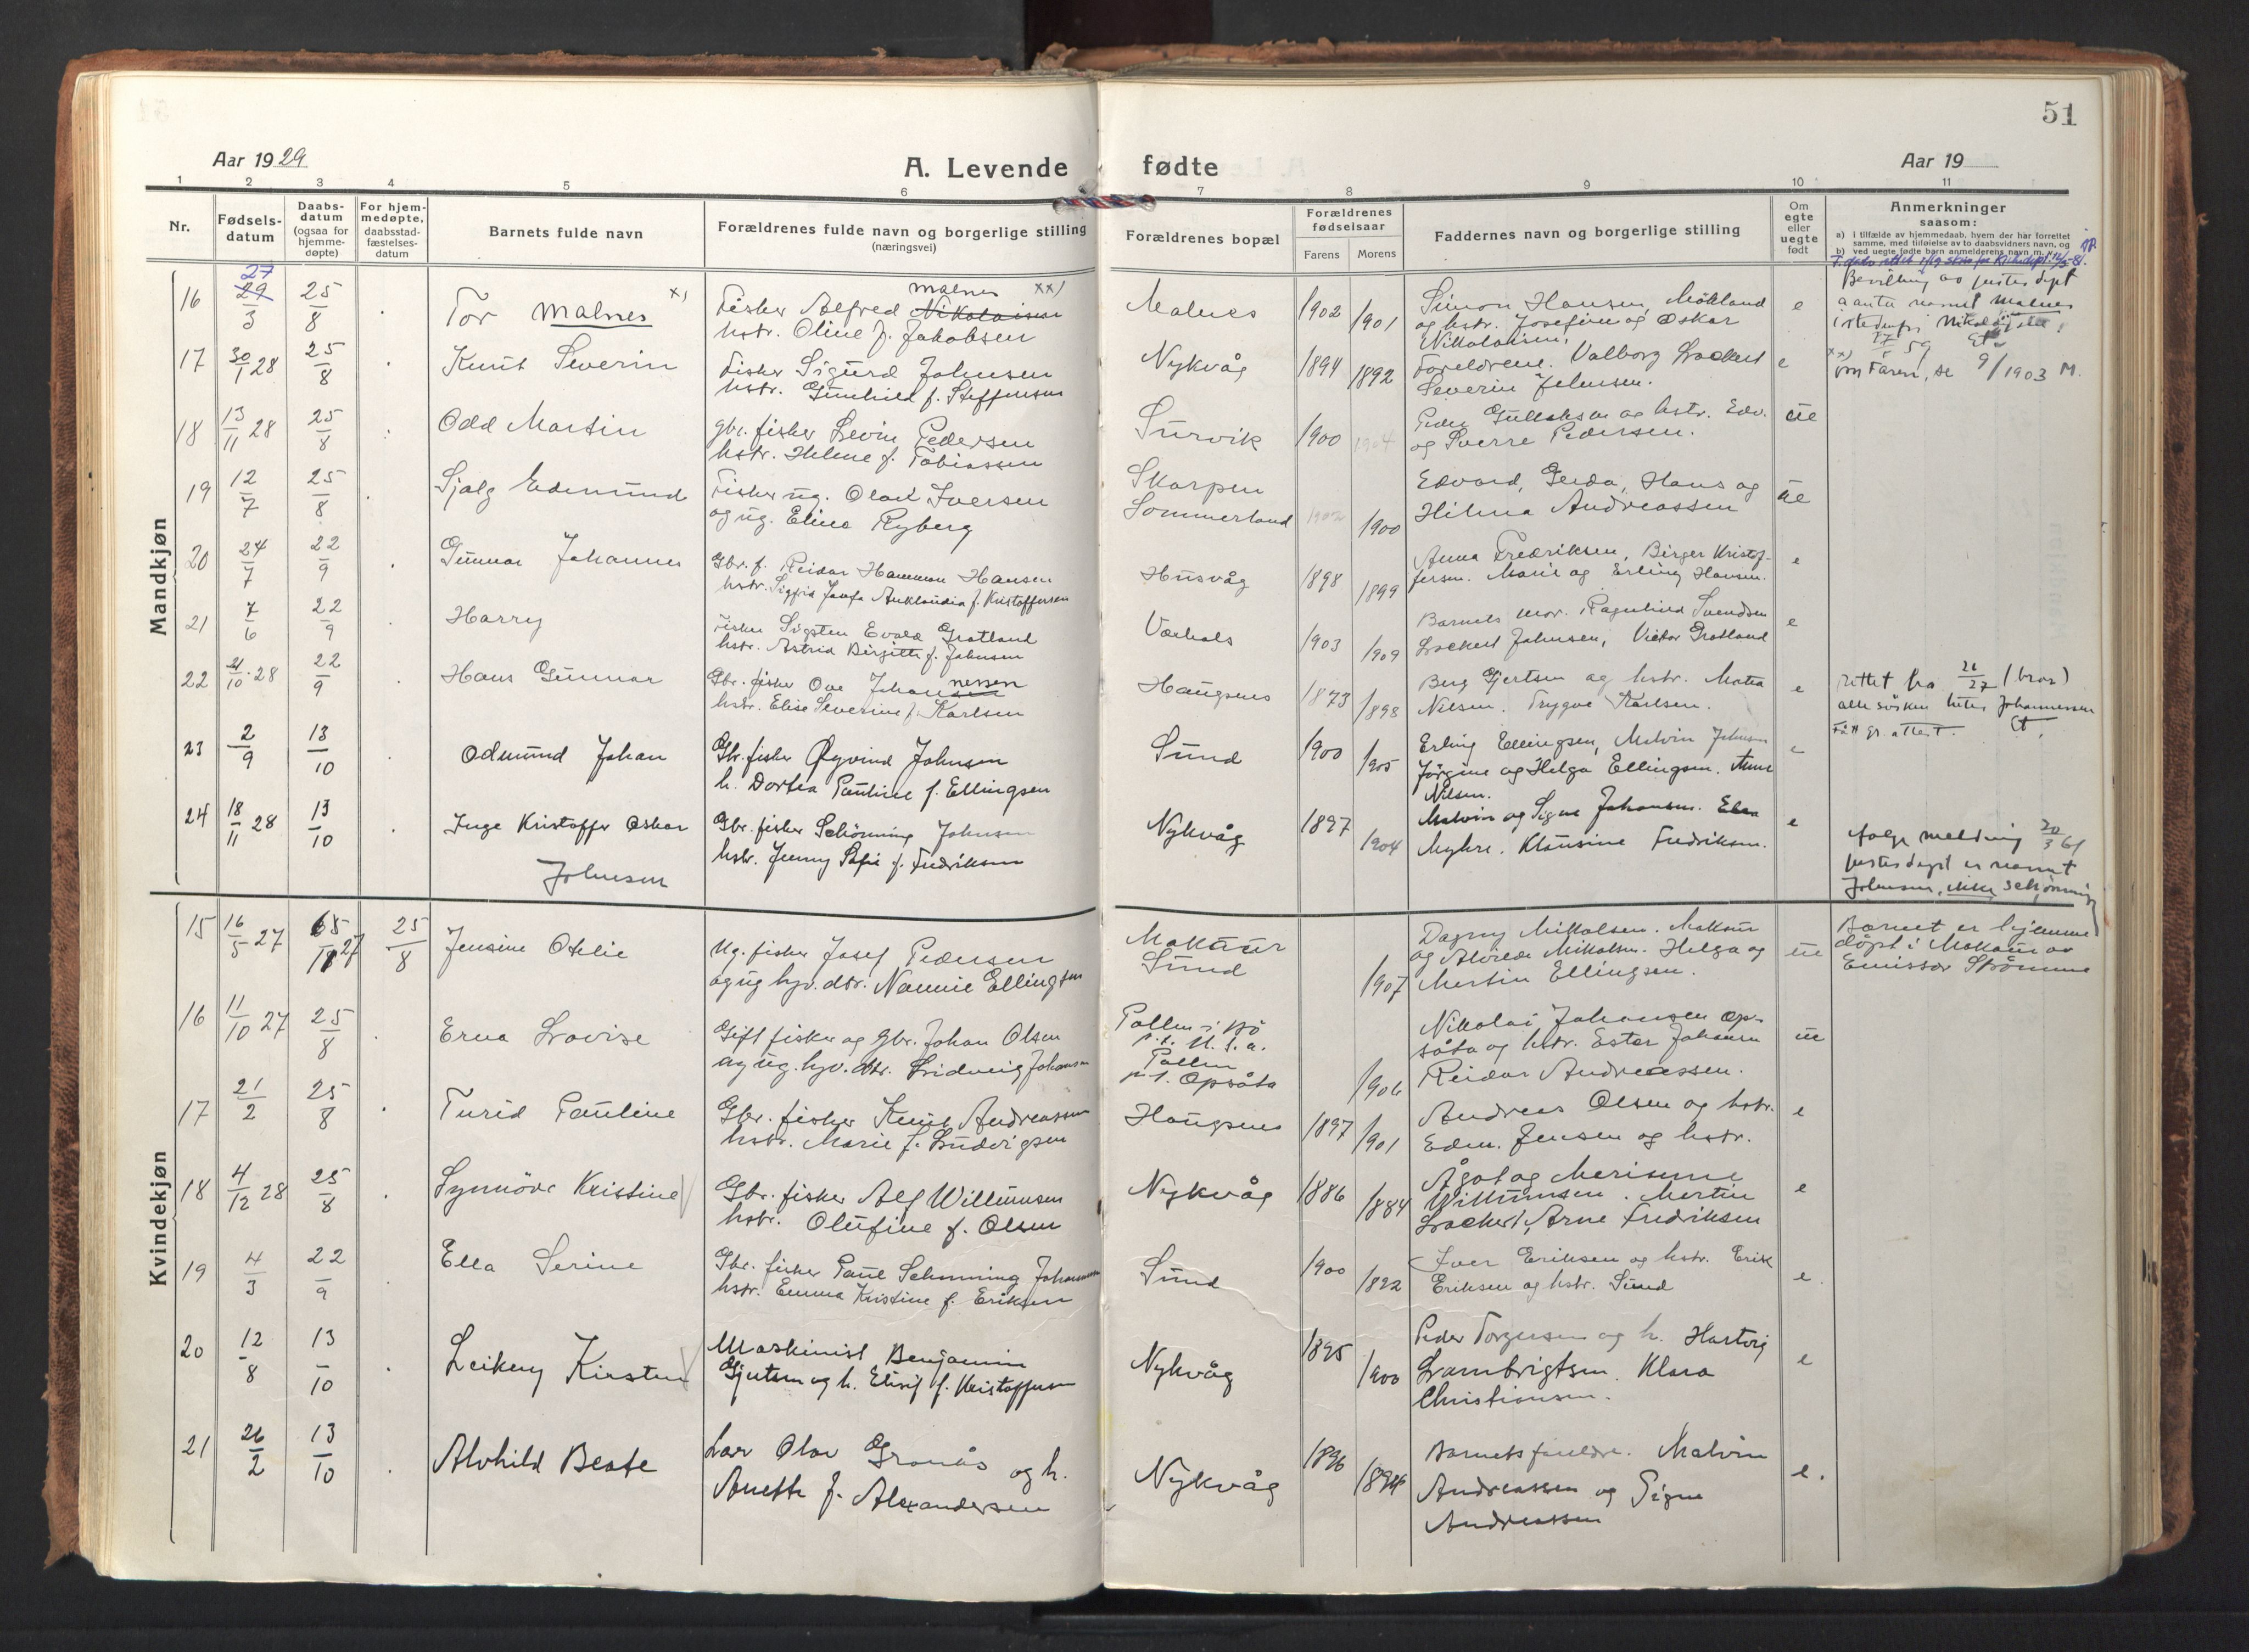 51
Aar 1929
A. Levende
fødte
Aar 19
1 2 3 4 5 6 7 8 9 10 11
Nr.
Fødsels-
datum
Daabs-
datum
(ogsaa for
hjemme-
døpte)
For hjem-
medøpte,
daabsstad-
fæstelses-
datum
Barnets fulde navn
Forældrenes fulde navn og borgerlige stilling
(næringsvei)
Forældrenes bopæl
Forældrenes
fødselsaar
Farens Morens
Faddernes navn og borgerlige stilling
Om
egte
eller
uegte
født
Anmerkninger
saasom:
a) i tilfælde av hjemmedaab, hvem der har forrettet
samme, med tilføielse av to daabsvidners navn, og
b) ved uegte fødte barn anmelderens navn m. v.
Mandkjøn
16 27 29/3 25/8 Tor Malnes x)
Fisker Alfred Nikolaisen Malnes xx)
hstr. Oline f. Jakobsen
Malnes 1902 1901
Simon Hansen, Mökland
og hstr. Josefine og Oskar
Nikolaisen.
e
Bevilling av justisdept
å anta navnet Malnes
istedenfor Nikolaisen
xx)
om Faren, se 9/1903 M.
17 30/1 28 25/8 Knut Severin
Fisker Sigurd Johnsen
hstr. Gunhild f. Steffensen
Nykvåg 1894 1892
Foreldrene. Valborg Lockert
Severin Johnsen.
e
18 13/11 28 25/8 Odd Martin
gbr. fisker Levin Pedersen
hstr. Helene f. Tobiassen
Survik 1900 1904
Peder Gullaksen og hstr. Edv.
og Sverre Pedersen.
19 12/7 25/8 Sjalg Edmund
Fisker ug. Olaf Iversen
og ug. Elina Ryberg
Skarpen
Sommerland 1902 1900
Edvard, Gerda, Hans og
Hilma Andreassen
ue
20 24/7 22/9 Gunnar Johannes
Gbr. f. Reidar Hansen
hstr. Sigfrid f. Kristoffersen
Husvåg 1898 1899
Anna Fredriksen, Birger Kristof-
fersen. Marie og Erling Hansen.
e
21 7/6 22/9 Harry
Fisker Sigsten Evald Grotland
hstr. Astrid Birgitte f. Johnsen
1903 1909
Barnets mor. Ragnhild Svendsen
Lockert Johnsen, Viktor Grotland
e
22 21/10 28 22/9 Hans Gunnar
Gbr. fisker Ove Johannessen
hstr. Elise Severine f. Karlsen
Haugsnes 1873 1898
Berg Gjertsen og hstr. Matea
Nilsen. Trygve Karlsen.
e
rettet fra 21/27 (bror)
alle søsken heter Johannessen
Fått gr. attest.
23 2/9 13/10 Odmund Johan
Gbr. fisker Øyvind Johnsen
h. Dortea Pauline f. Ellingsen
Sund 1900 1905
Erling Ellingsen, Malvin Johnsen
Jörgine og Helga Ellingsen. Anna
Nilsen.
e
24 18/11 28 13/10 Inge Kristoffer Oskar
Johnsen
Gbr. fisker Schönning Johnsen
hstr. Jenny Sofie f. Fredriksen
Nykvåg 1897 1904
Malvin og Signe Johansen. Elen
Myhre. Klausine Fredriksen.
e
ifølge melding 20/3 61
justisdept er navnet
Johnsen, ikke Schönning
Kvindekjøn
15 16/5 27 25/8 Jensine Otelie
Ug. fisker Josef Pedersen
og ug hjv. dtr. Nannie Ellingsen
Makkaur
Sund 1907
Dagny Mikkalsen. Makkaur
og Alvilde Mikkalsen. Helga og
Martin Ellingsen.
ue
Barnet er hjemme
døpt i Makkaur av
Emissær Strömme
16 11/10 27 25/8 Erna Lovise
Gift fisker og Gbr. Johan Olsen
og ug. hjv. dtr. Lidveig Johansen
Pollen i Bö
p.t. U.S.A.
Pollen
p.t. Opsåta 1906
Nikolai Johansen Op-
såta og hstr. Ester Johansen
Reidar Andreassen.
ue
17 21/2 25/8 Turid Pauline
Gbr. fisker Knut Andreassen
hstr. Marie f. Ludvigsen
Haugsnes 1897 1901
Andreas Olsen og hstr.
Edm. Jensen og hstr.
e
18 4/12 28 25/8 Synnöve Kristine
Gbr. fisker Alf Willumsen
hstr. Olufine f. Olsen
Nykvåg 1886 1884
Ågot og Merianne
Willumsen. Martin
Lockert, Arne Fredriksen
e
19 4/3 22/9 Ella Serine
Gbr. fisker Paul Schönning Johansen
hstr. Emma Kristine f. Eriksen
Sund 1900 1822
Iver Eriksen og hstr. Erik
Eriksen og hstr. Sund
e.
20 12/8 13/10 Leikny Kirsten
Maskinist Benjamin
Gjertsen og h. Elisif f. Kristoffersen
Nykvåg 1895 1900
Peder Torgersen og h. Hartvig
Lambrigtsen. Klara
Christiansen.
e
21 26/2 13/10 Alvhild Beate
Lær Olav Grønås og h.
Anette f. Alexandersen
Nykvåg 1896 1894
Barnets foreldre. Malvin
Andreassen og Signe
Andreassen
e.